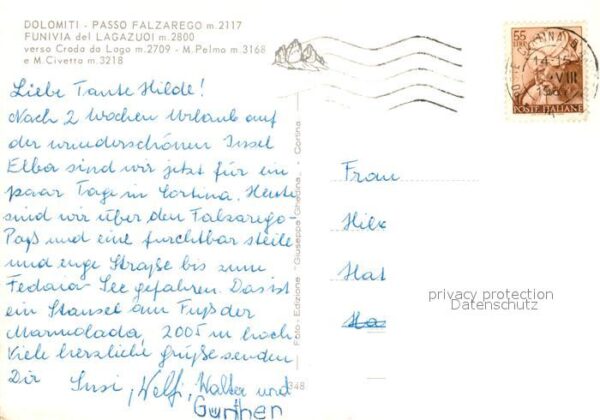 DOLOMITI - PASSO FALZAREGO m. 2117
FUNIVIA del LAGAZUOI m. 2800
verso Croda da Lago m. 2709 - M. Pelmo m. 3168
e M. Civetta m. 3218
Liebe Tante Hilde!
Nach 2 Wochen Urlaub auf
der wunderschönen Insel
Elba sind wir jetzt für ein
paar Tage in Cortina. Heute
sind wir über den Falzarego-
Paß und eine furchtbar steile
und enge Straße bis zum
Fedaia-See gefahren. Das ist
ein Stausee am Fuß der
Marmolada, 2005 m hoch.
Viele herzliche Grüße senden
Dir Susi, Wolfi, Walter und
Günther
Foto - Edizione Giuseppe Ghedina - Cortina
348
55
LIRE
POSTE ITALIANE
CORTINA
VIII
Frau
Hil
Hat
privacy protection
Datenschutz